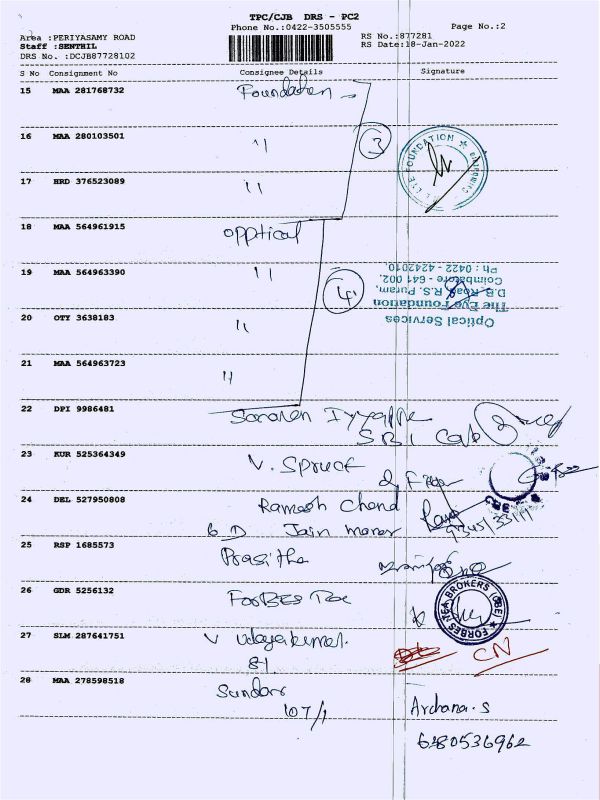 TPC/CJB DRS - PC2
Phone No.:0422-3505555
Page No.:2
Area :PERIYASAMY ROAD
RS No.:877281
Staff :SENTHIL
RS Date:18-Jan-2022
DRS No. :DCJB87728102
S No Consignment No Consignee Details Signature
15 MAA 281768732 Foundation
16 MAA 280103501 "
3
EYE FOUNDATION
17 HRD 376523089 "
18 MAA 564961915 opptical
19 MAA 564963390 "
4
Optical Services
The Eye Foundation
D.B. Road, R.S. Puram,
Coimbatore - 641 002.
Ph : 0422 - 4242010
20 OTY 3638183 "
21 MAA 564963723 "
22 DPI 9986481 Saravan Iyyappa
SBI Cap
23 KUR 525364349 V. Spruce
24 DEL 527950808 Ramesh Chand
6 D Jain manor
25 RSP 1685573 Prasitha
26 GDR 5256132 ForBES Tea
FORBES TEA BROKERS (CBE)
27 SLM 287641751 V Udayakumar
81
CN
28 MAA 278598518 Sundar
107/1
Archana.S
6380536962